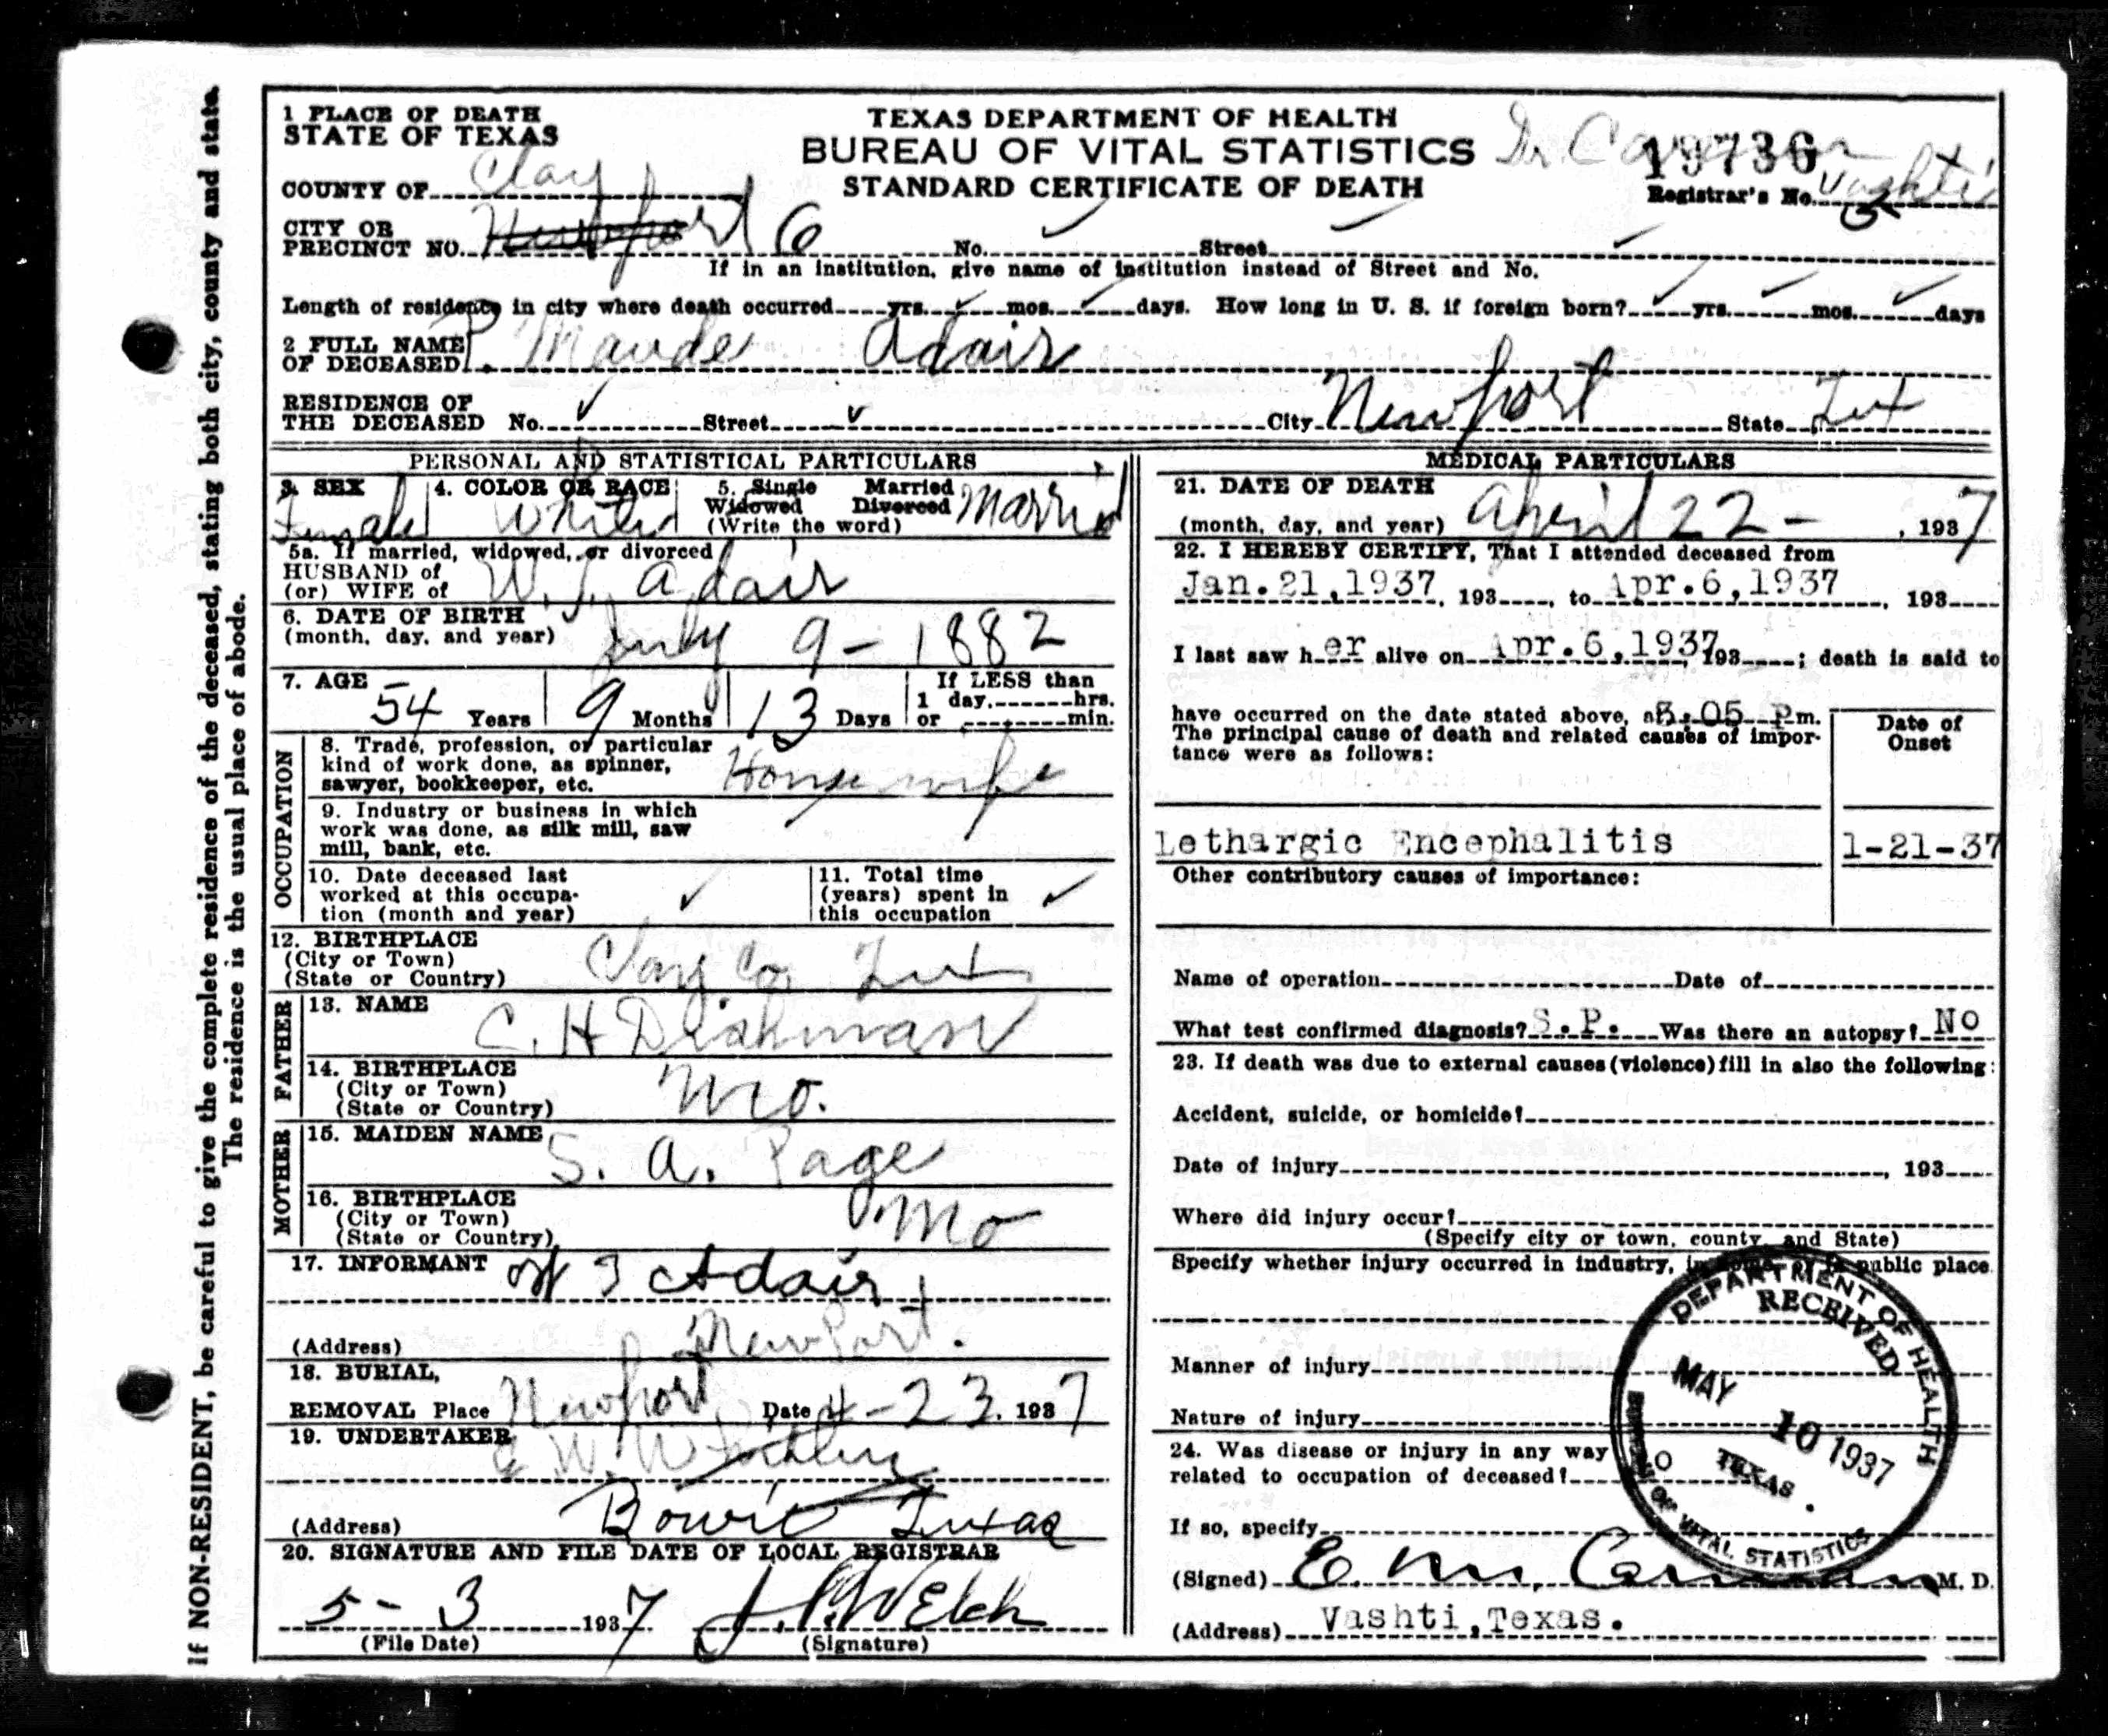 If NON-RESIDENT, be careful to give the complete residence of the deceased, stating both city, county and state.
The residence is the usual place of abode.
1 PLACE OF DEATH
STATE OF TEXAS
TEXAS DEPARTMENT OF HEALTH
BUREAU OF VITAL STATISTICS
STANDARD CERTIFICATE OF DEATH
Dr
19736
Registrar's No. Vashti
5
COUNTY OF Clay
CITY OR
PRECINCT NO. Newport 6 No. Street
If in an institution, give name of institution instead of Street and No.
Length of residence in city where death occurred yrs. mos. days. How long in U. S. if foreign born? yrs. mos. days
2 FULL NAME
OF DECEASED P. Maude Adair
RESIDENCE OF
THE DECEASED No. Street City Newport State Tex
PERSONAL AND STATISTICAL PARTICULARS
3. SEX Female 4. COLOR OR RACE White 5. Single Married Widowed Divorced (Write the word) Married
5a. If married, widowed, or divorced
HUSBAND of
(or) WIFE of W. J. Adair
6. DATE OF BIRTH
(month, day, and year) July 9 - 1882
7. AGE 54 Years 9 Months 13 Days If LESS than 1 day, hrs. or min.
OCCUPATION
8. Trade, profession, or particular
kind of work done, as spinner,
sawyer, bookkeeper, etc. Housewife
9. Industry or business in which
work was done, as silk mill, saw
mill, bank, etc.
10. Date deceased last
worked at this occupa-
tion (month and year)
11. Total time
(years) spent in
this occupation
12. BIRTHPLACE
(City or Town)
(State or Country) Clay Co. Tex
FATHER
13. NAME C. H Dishman
14. BIRTHPLACE
(City or Town)
(State or Country) Mo.
MOTHER
15. MAIDEN NAME S. A. Page
16. BIRTHPLACE
(City or Town)
(State or Country) Mo
17. INFORMANT W J Adair
(Address) Newport.
18. BURIAL,
REMOVAL Place Newport Date 4-23. 1937
19. UNDERTAKER
(Address) Bowie Texas
20. SIGNATURE AND FILE DATE OF LOCAL REGISTRAR
5-3 1937 J. P. Welch
(File Date) (Signature)
MEDICAL PARTICULARS
21. DATE OF DEATH
(month, day, and year) April 22 - , 1937
22. I HEREBY CERTIFY, That I attended deceased from
Jan. 21, 1937, 193 , to Apr. 6, 1937, 193
I last saw her alive on Apr. 6, 1937, 193 ; death is said to
have occurred on the date stated above, at 05 P m.
The principal cause of death and related causes of impor-
tance were as follows:
Date of
Onset
Lethargic Encephalitis 1-21-37
Other contributory causes of importance:
Name of operation Date of
What test confirmed diagnosis? S. P. Was there an autopsy? No
23. If death was due to external causes (violence) fill in also the following:
Accident, suicide, or homicide?
Date of injury , 193
Where did injury occur?
(Specify city or town, county, and State)
Specify whether injury occurred in industry, in home, or in public place.
Manner of injury
Nature of injury
24. Was disease or injury in any way
related to occupation of deceased? No
If so, specify
(Signed) E. M. M. D.
(Address) Vashti, Texas.
DEPARTMENT OF HEALTH
RECEIVED
MAY 10 1937
TEXAS
BUREAU OF VITAL STATISTICS